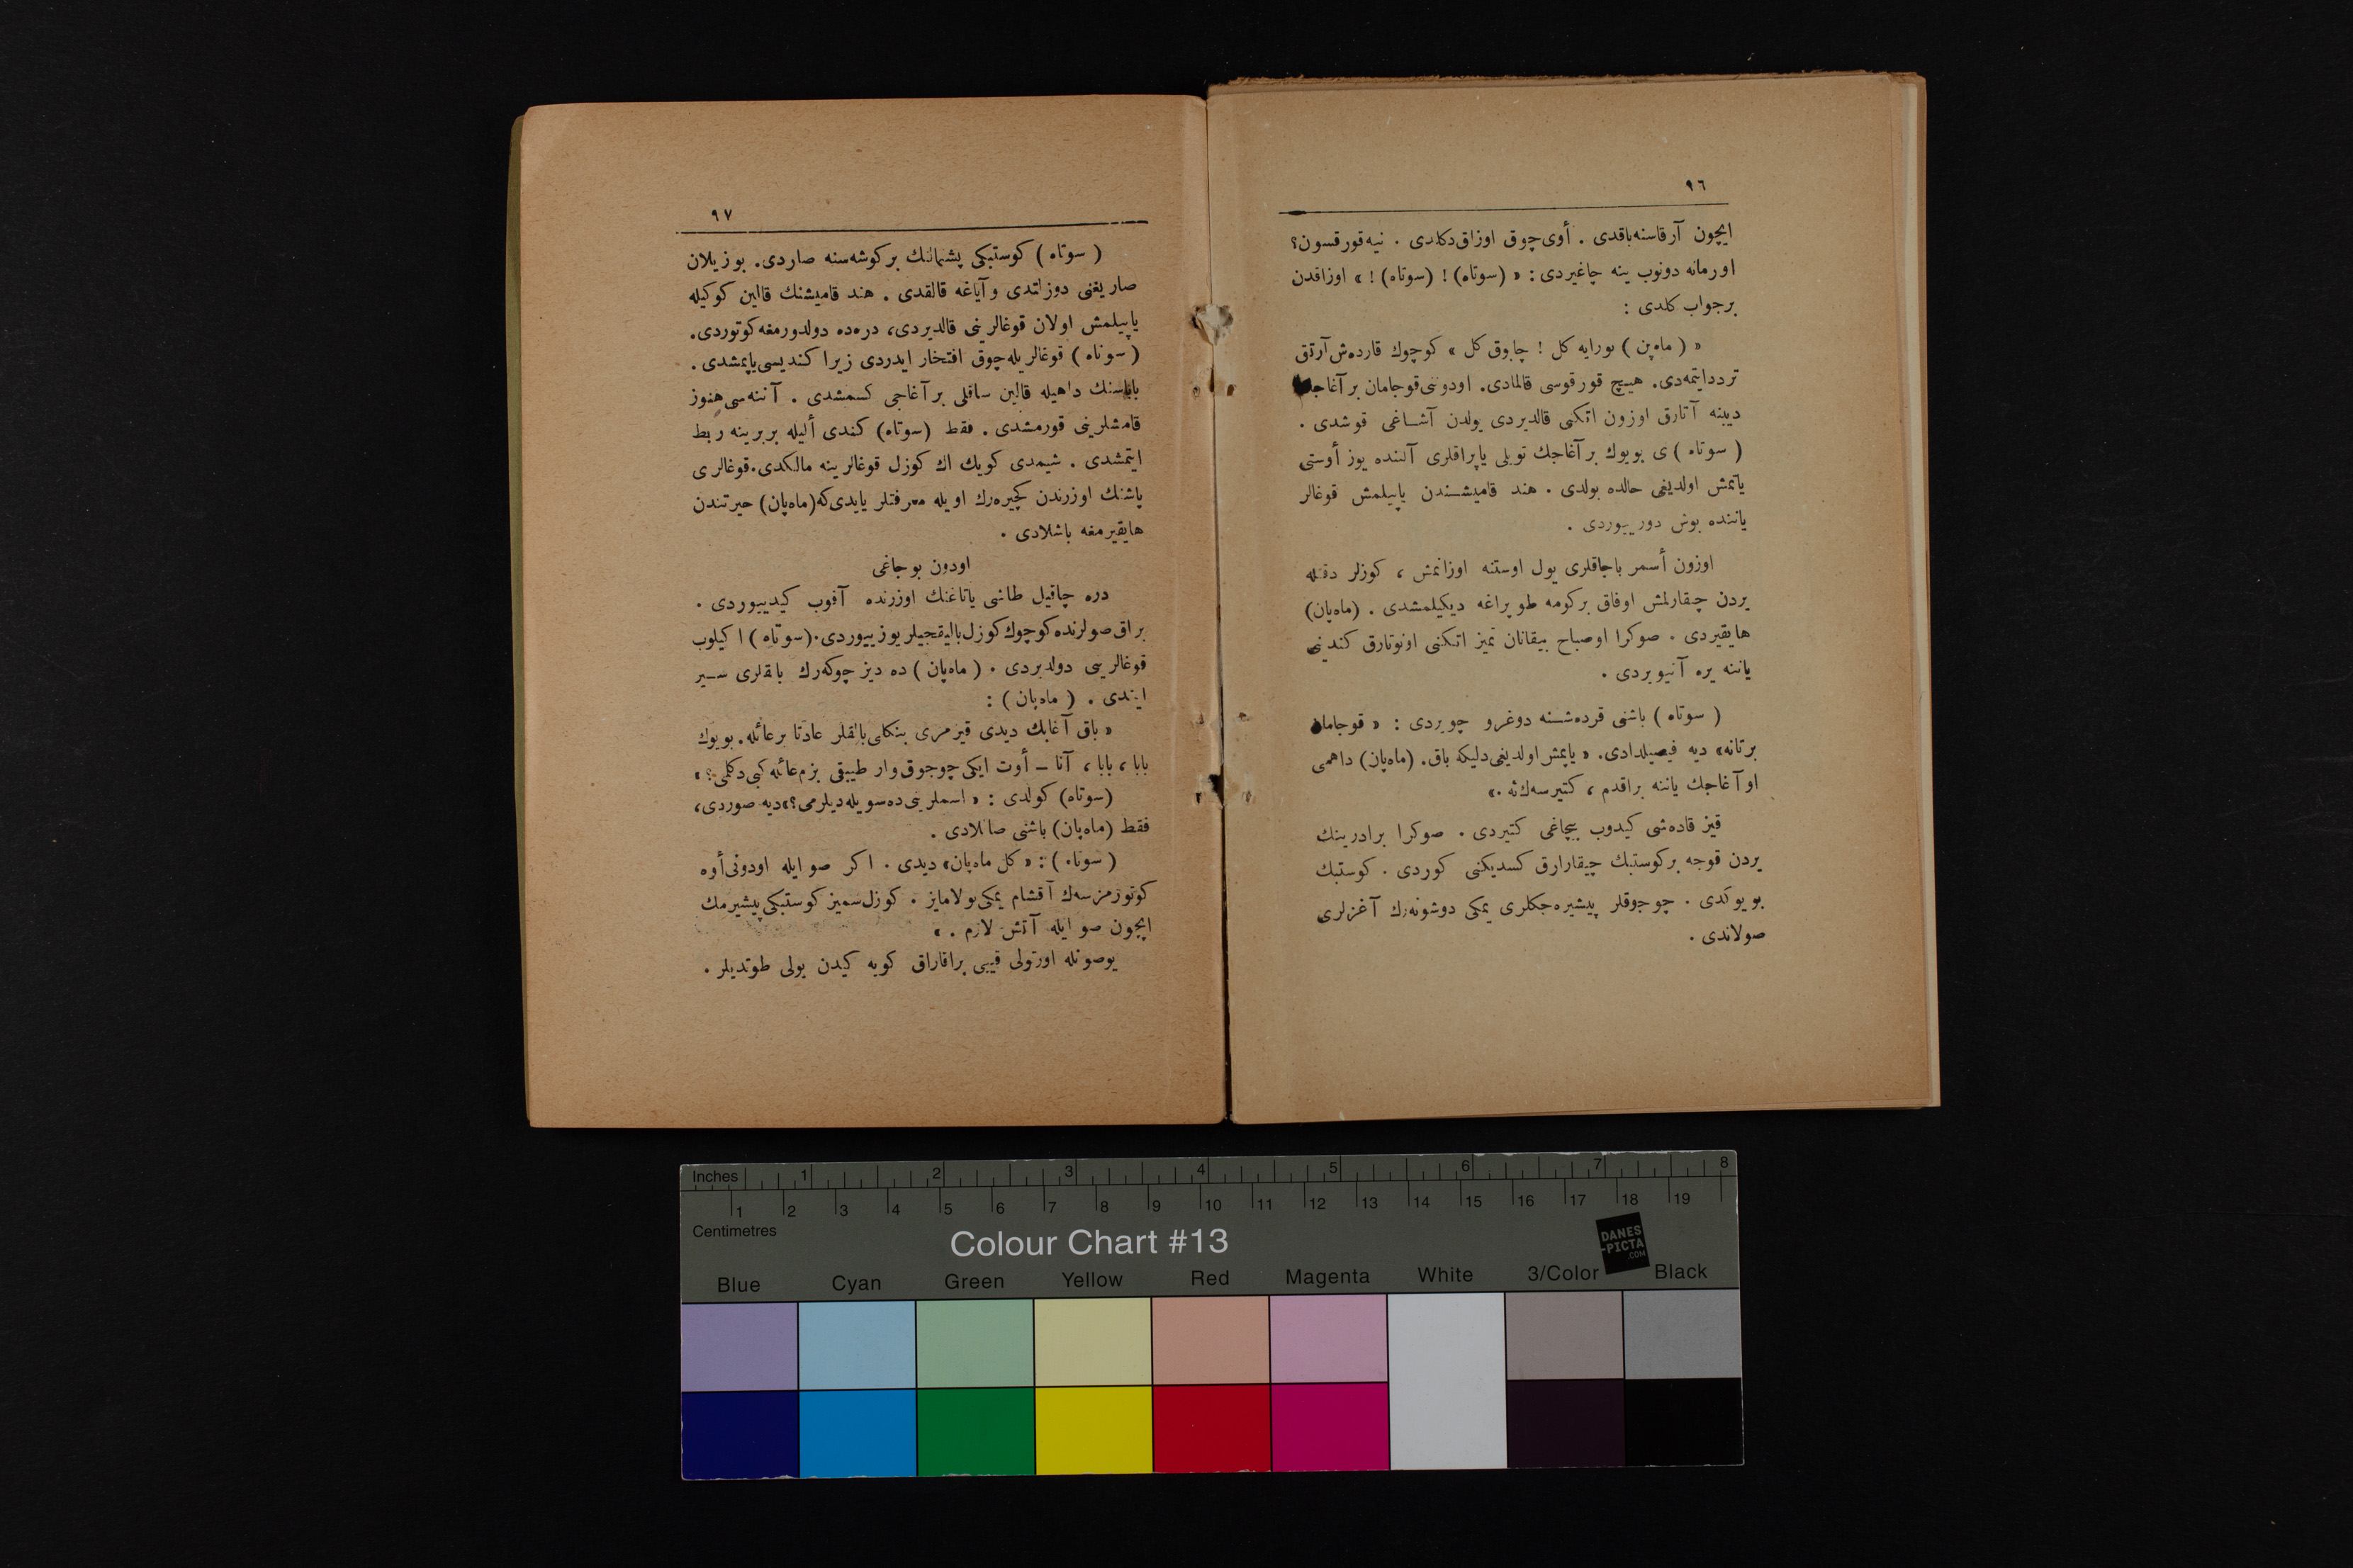 ٩٦
ایچون آرقاسنه باقدی . أوی چوق اوزاق دكلدی . نیه قورقسون؟
اورمانه دونوب ینه چاغیردی : « (سوتاه) ! (سوتاه) ! » اوزاقدن
برجواب كلدی :
« ( ماه‌پن ) بورایه كل ! چابوق كل » كوچوك قارده‌ش آرتق
ترددایتمه‌دی. هیچ قورقوسی قالمادی. اودونی قوجامان بر آغاجك
دیبنه آتارق اوزون اتكنی قالدیردی یولدن آشاغی قوشدی .
( سوتاه ) ی بویوك بر آغاجك تویلی یاپراقلری آلتنده یوز أوستی
یاتمش اولدیغی حالده بولدی . هند قامیشندن یاپیلمش قوغالر
یاننده بوش دوریوردی .
اوزون أسمر باجاقلری یول اوستنه اوزانمش ، كوزلر دقتله
یردن چیقارلمش اوفاق بركومه طوپراغه دیكیلمشدی . (ماه‌پان)
هایقیردی . صوكرا اوصباح ییقانان تمیز اتكنی اونوتارق كندینی
یاننه یره آتیویردی .
( سوتاه ) باشنی قرده‌شنه دوغرو چویردی : « قوجامان
برتانه» دیه فیصیلدادی. « یاپمش اولدیغی دلیكه باق. (ماه‌پان) داهمی
او آغاجك یاننه براقدم ، كتیرسه‌ك‌ئه .»
قیز قاده‌شی كیدوب بیچاغی كتیردی . صوكرا برادرینك
یردن قوجه بركوستبك چیقارارق كسدیكنی كوردی . كوستبك
بویوكدی . چوجوقلر پیشیره‌جكلری یمكی دوشونه‌رك آغزلری
صولاندی .
٩٧
( سوتاه ) كوستبكی پشتمالنك بركوشه‌سنه صاردی. بوزیلان
صاریغنی دوزلتدی و آیاغه قالقدی . هند قامیشنك قالین كوكیله
یاپیلمش اولان قوغالرینی قالدیردی، دره‌ده دولدورمغه كوتوردی.
( سوتاه ) قوغالریله چوق افتخار ایدردی زیرا كندیسی یاپمشدی .
باباسنك داهیله قالین ساقلی بر آغاجی كسمشدی . آننه‌سی هنوز
قامشلرینی قورمشدی . فقط (سوتاه) كندی ألیله بربرینه ربط
ایتمشدی . شیمدی كویك اك كوزل قوغالرینه مالكدی. قوغالری
پاشنك اوزرندن كچیره‌رك اویله معرفتلر یاپدی كه (ماه‌پان) حیرتندن
هایقیرمغه باشلادی .
اودون بوجاغی
دره چاقیل طاشی یاتاغنك اوزرنده آقوب كیدییوردی .
براق صولرنده كوچوك كوزل بالیقجیلر یوزییوردی. (سوتاه) اكیلوب
قوغالرینی دولدیردی . ( ماه‌پان ) ده دیز چوكه‌رك بالقلری سیر
ایتدی . ( ماه‌پان ) :
« باق آغابك دیدی قیرمزی بنكلی بالقلر عادتا برعائله. بویوك
بابا ، بابا ، آنا – أوت ایكی چوجوق وار طیبقی بزم عائله كبی دكلی؟»
(سوتاه) كولدی : « اسملرینی ده سویله‌دیلرمی؟» دیه صوردی،
فقط (ماه‌پان) باشنی صاللادی .
( سوتاه ) : « كل ماه‌پان» دیدی . اكر صو ایله اودونی أوه
كوتورمزسه‌ك آقشام یمكی بولامایز . كوزل سمیز كوستبكی پیشیرمك
ایچون صو ایله آتش لازم . »
یوصونله اورتولی قیبی براقاراق كویه كیدن یولی طوتدیلر .
Inches 1 2 3 4 5 6 7 8
1 2 3 4 5 6 7 8 9 10 11 12 13 14 15 16 17 18 19
Centimetres
Colour Chart #13
DANES-PICTA.COM
Blue Cyan Green Yellow Red Magenta White 3/Color Black